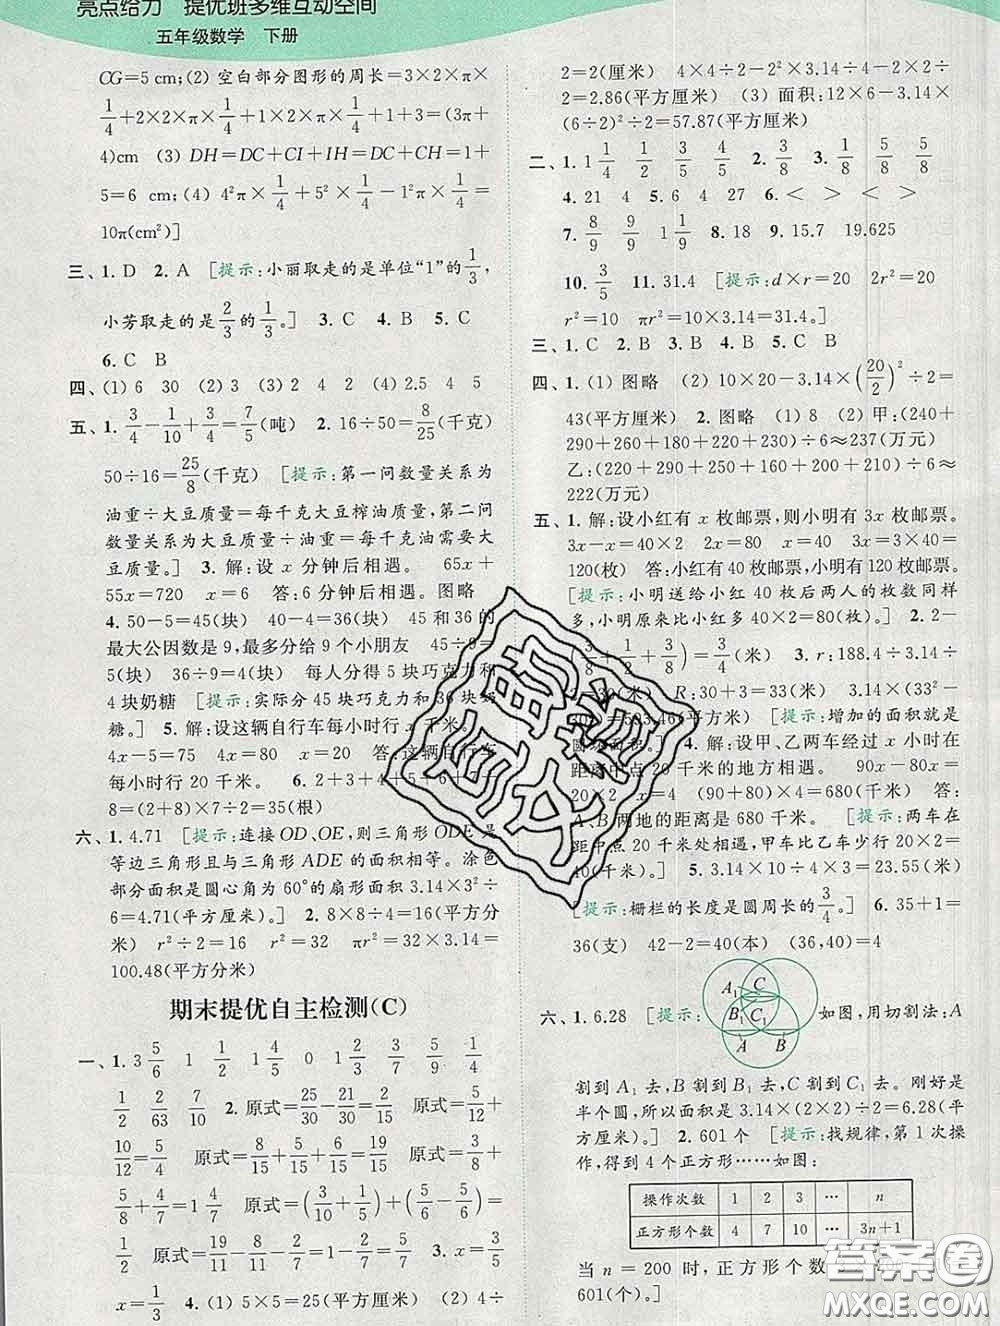 亮点给力 提优班多维互动空间
五年级数学 下册
CG=5 cm;(2) 空白部分图形的周长=3×2×π×
1/4+2×2×π×1/4+1×2×π×1/4+1+3=(3π+
4)cm (3) DH=DC+CI+IH=DC+CH=1+
5=6 cm;(4) 4²π×1/4+5²×1/4-1²π×1/4=
10π(cm²)]
三、1. D 2. A [提示:小丽取走的是单位“1”的1/3,
小芳取走的是2/3的1/3。] 3. C 4. B 5. C
6. C B
四、(1) 6 30 (2) 3 (3) 2 4 2 (4) 2.5 4 5
五、1. 3/4-1/10+3/4=7/5(吨) 2. 16÷50=8/25(千克)
50÷16=25/8(千克) [提示:第一问数量关系为
油重÷大豆质量=每千克大豆榨油质量,第二问
数量关系为大豆质量÷油重=每千克油需要大
豆质量。] 3. 解:设 x 分钟后相遇。 65x+
55x=720 x=6 答:6 分钟后相遇。图略
4. 50-5=45(块) 40-4=36(块) 45 和 36 的
最大公因数是 9,最多分给 9 个小朋友 45÷9=
5(块) 36÷9=4(块) 每人分得 5 块巧克力和
4 块奶糖 [提示:实际分 45 块巧克力和 36 块奶
糖。] 5. 解:设这辆自行车每小时行 x 千米。
4x-5=75 4x=80 x=20 答:这辆自行车
每小时行 20 千米。 6. 2+3+4+5+6+7+
8=(2+8)×7÷2=35(根)
六、1. 4.71 [提示:连接 OD、OE,则三角形 ODE 是
等边三角形且与三角形 ADE 的面积相等。涂色
部分面积是圆心角为 60°的扇形面积 3.14×3²÷
6=4.71(平方厘米)。] 2. 8×8÷4=16(平方分
米) r²÷2=16 r²=32 3.14×32=
100.48(平方分米)
期末提优自主检测(C)
一、1. 3 5/6 1/2 1 4/5 0 1 3/2 3/7 5/9 1/4
1/2 2/63 7/10 2. 原式=25/30-21/30=2/15 原式=5/12+
10/12=5/4 原式=8/15+4/15+5/6=12/15+5/6=49/30
5/8+4/7=1 11/56 原式=(3/10+1/10)+(5/6-2/3)=
1/2 原式=19/11-8/11-2/7=1-2/7=5/7 3. x=3/5
x=1/3 4. (1) 5×5=25(平方厘米) (2) 4÷
2=2(厘米) 4×4÷2-2²×3.14÷4-2×2÷
2=2.86(平方厘米) (3) 面积:12×6-3.14×
(6÷2)²÷2=57.87(平方厘米)
二、1. 1 1/4 1/2 3/5 4/5 2. 3/8 3. 1/8 5/8 5/8
4. 21 4 5. 6 4 27 6. < > < >
7. 8/9 9/9 1 1/9 8. 18 9. 15.7 19.625
10. 3/5 11. 31.4 [提示:d×r=20 2r²=20
r²=10 πr²=10×3.14=31.4。]
三、1. C 2. B 3. B 4. B 5. C B
四、1. (1) 图略 (2) 10×20-3.14×(20/2)²÷2=
43(平方厘米) 2. 图略 (1) 8 (2) 甲:(240+
290+260+180+220+230)÷6≈237(万元)
乙:(220+210+250+210+220+220)÷6≈
222(万元)
五、1. 解:设小红有 x 枚邮票,则小明有 3x 枚邮票。
3x-x=40×2 2x=80 x=40 3x=3×40=
120(枚) 答:小红有 40 枚邮票,小明有 120 枚邮票。
[提示:小明送给小红 40 枚后两人的枚数同样
多,小明原来比小红多 40×2=80(枚)。] 2. 2-
+1/2+3/8)=3/4(米) 3. r:188.4÷3.14÷
2=30(米) R:30+3=33(米) 3.14×(33²-
30²)=593.46(平方米) [提示:增加的面积就是
圆环面积。] 4. 解:设甲、乙两车经过 x 小时在
距离中点 20 千米的地方相遇。 90x-80x=
20×2 x=4 (90+80)×4=680(千米) 答:
A、B 两地的距离是 680 千米。 [提示:两车在
距中点 20 千米处相遇,甲车比乙车少行 20×2=
40(千米)。] 5. 3.14×10×3/4=23.55(米)
[提示:栅栏的长度是圆周长的3/4。] 6. 35+1=
36(支) 42-2=40(本) (36,40)=4
六、1. 6.28 [提示: A₁ C B₁ C₁ A B 如图,用切割法:A
割到 A₁ 去,B 割到 B₁ 去,C 割到 C₁ 去。刚好是
半个圆,所以面积是 3.14×(2×2)÷2=6.28(平
方厘米)。] 2. 601 个 [提示:找规律,第 1 次操
作,得到 4 个正方形……如图:
操作次数 1 2 3 … n
正方形个数 4 7 10 … 3n+1
当 n=200 时,正方形个数
601(个)。]
答案圈
MXQE.COM